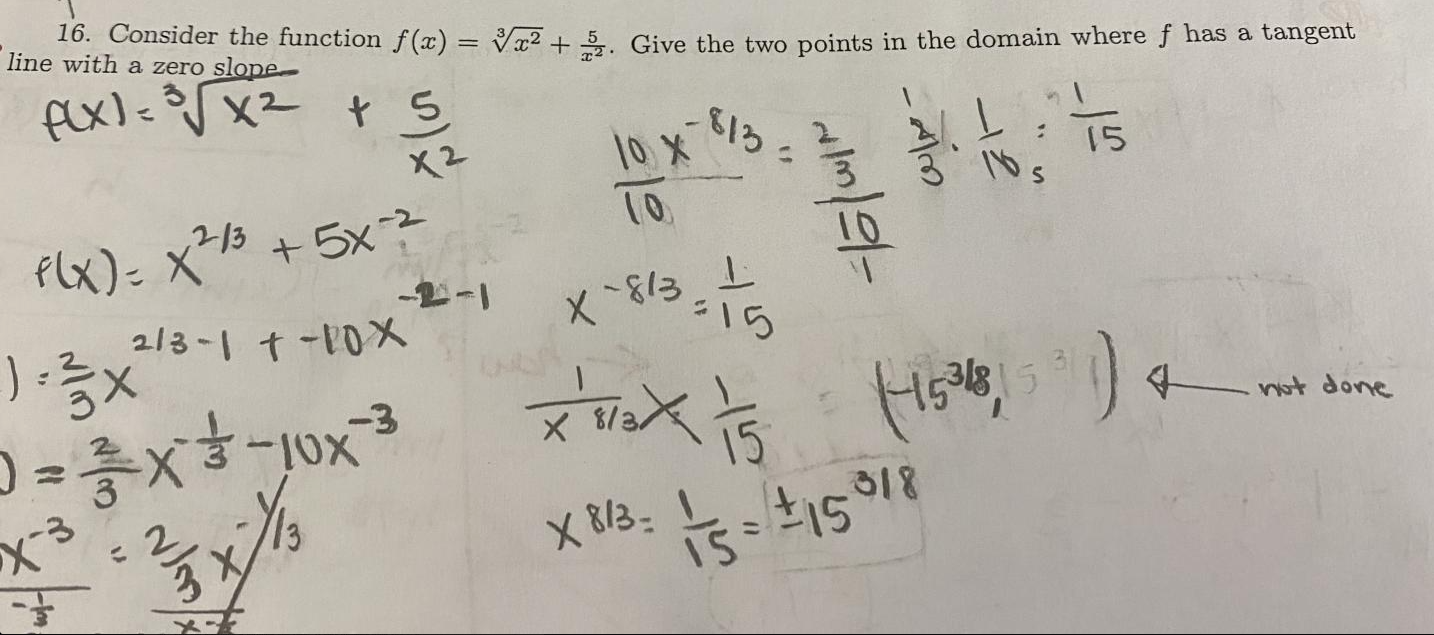 16. Consider the function f(x) = ∛x² + 5/x². Give the two points in the domain where f has a tangent
line with a zero slope.
f(x) = ³√x2 + 5/x2
f(x) = x^2/3 + 5x^-2
) = 2/3 x^2/3-1 + -10x^-2-1
) = 2/3 x^-1/3 - 10x^-3
x^-3 = 2/3 x^-1/3
-1/3
10x^-8/3 / 10 = 2/3 / 10/1
2/3 · 1/10 5 = 1/15
x^-8/3 = 1/15
1/x^8/3 1/15
x^8/3 = 1/15 = ±15^3/8
(-15^3/8, ) ← not done